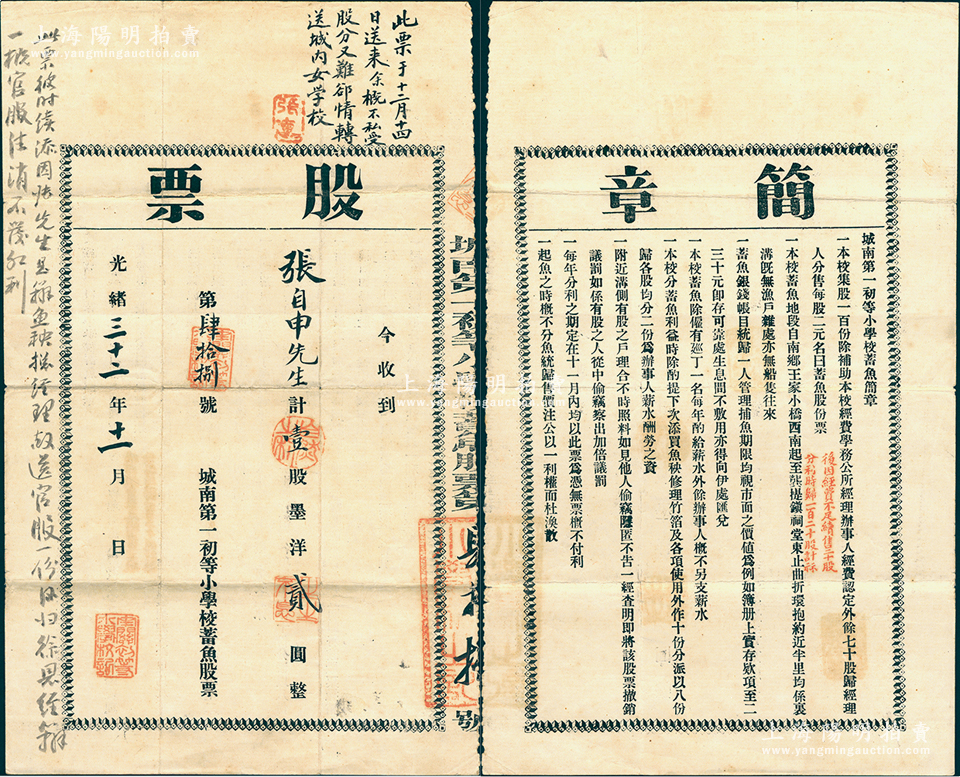 簡章
城南第一初等小學校蓄魚簡章
一本校集股一百份除補助本校經費學務公所經理辦事人經費認定外餘七十股歸經理
人分售每股二元名曰蓄魚股份票
後因經費不足續售二十股
分利時歸一百二十股計算
一本校蓄魚地段自南鄉王家小橋西南起至龔堤鎮祠堂東止曲折環抱約近半里均係裏
溝既無漁戶雜處亦無船隻往來
一蓄魚銀錢帳目統歸一人管理捕魚期限均視市面之價值為例如簿册上實存欵項至二
三十元即存可靠處生息間不敷用亦得向伊處匯兌
一本校蓄魚除僱有巡丁一名每年酌給薪水外餘辦事人概不另支薪水
一本校分蓄魚利益時除酌提下次添買魚秧修理竹箔及各項使用外作十份分派以八份
歸各股均分二份為辦事人薪水酬勞之資
一附近溝側有股之戶理合不時照料如見他人偷竊隱匿不告一經查明即將該股票撤銷
議罰如係有股之人從中偷竊察出加倍議罰
一每年分利之期定在十一月內均以此票為憑無票概不付利
一起魚之時概不分魚統歸售價注公以一利權而杜渙散
此票于十二月十四
日送来余概不私受
股分又難卻情轉
送城内女學校
股票
今收到
張自申先生計壹股墨洋貳圓整
第肆拾捌號
城南第一初等小學校蓄魚股票
光緒三十二年十一月日
此票彼時續添因
先生是辦魚秧
經理故送官股一份
一概官股注消不發紅利
www.yangmingauction.com
上海陽明拍賣